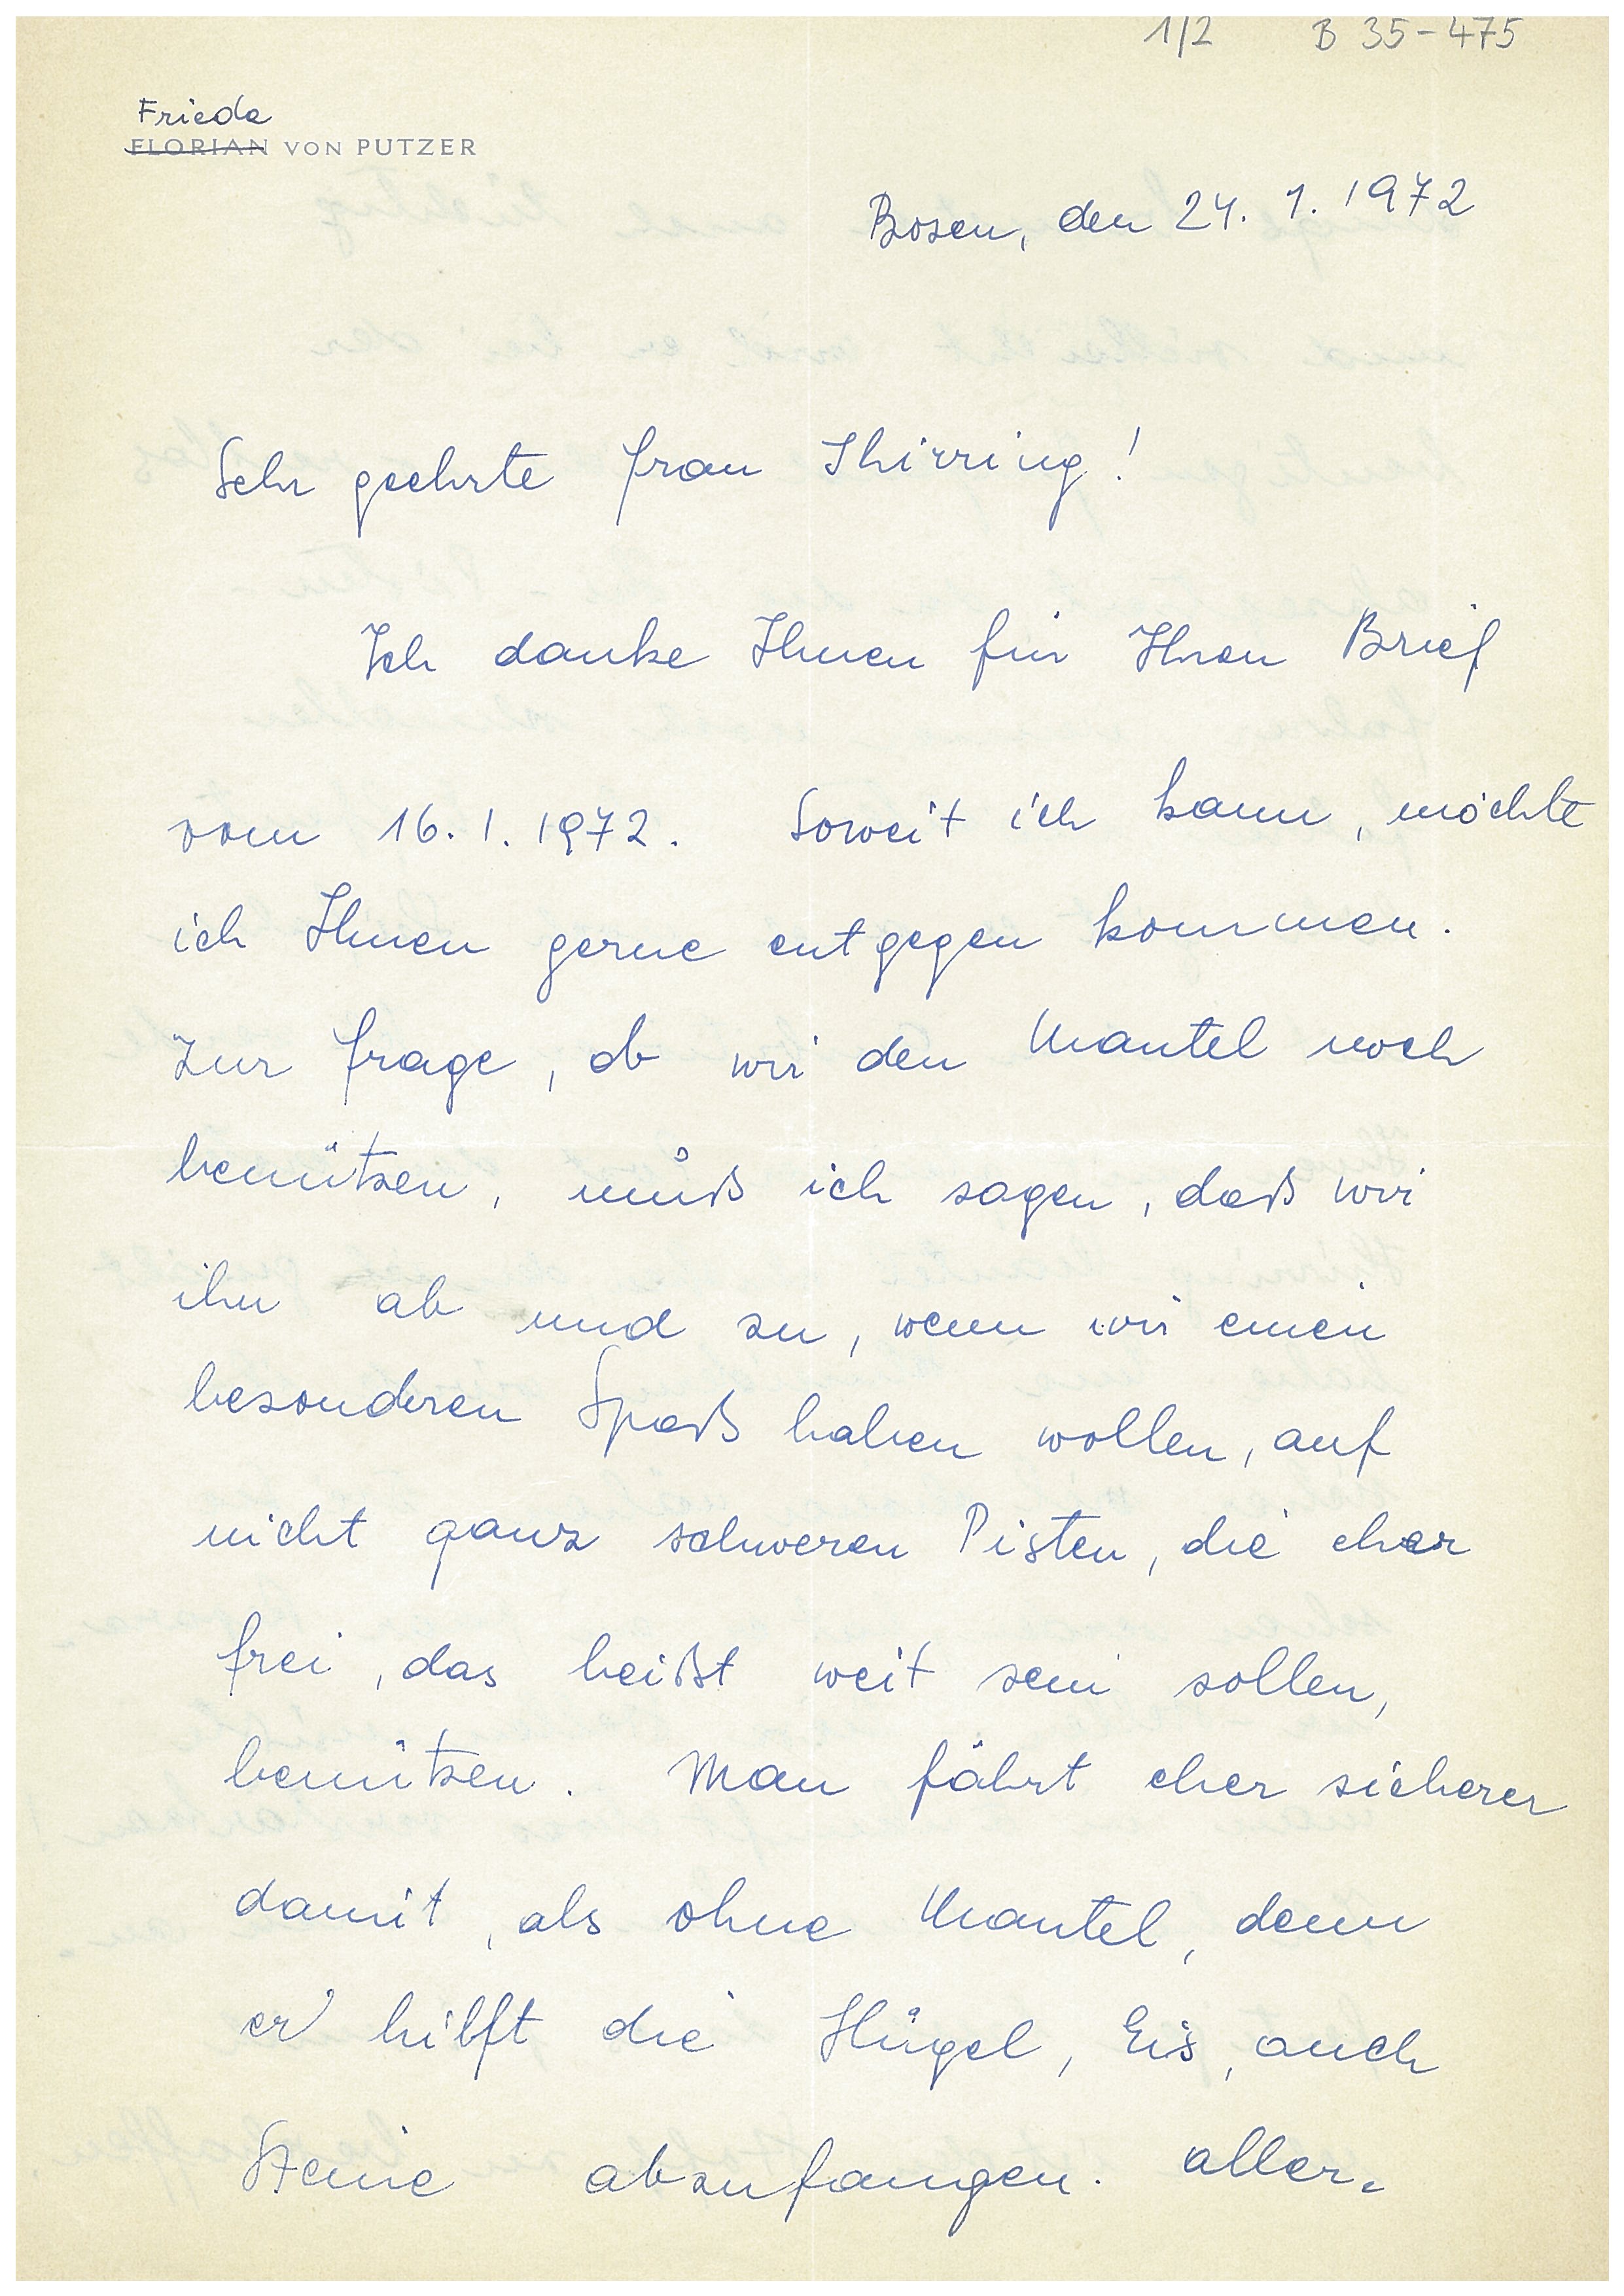 1/2 B 35-475
Frieda
FLORIAN VON PUTZER
Bozen, den 24. 1. 1972
Sehr geehrte Frau Thirring!
Ich danke Ihnen für Ihren Brief
vom 16. 1. 1972. Soweit ich kann, möchte
ich Ihnen gerne entgegen kommen.
Zur Frage, ob wir den Mantel noch
benützen, muß ich sagen, daß wir
ihn ab und zu, wenn wir einen
besonderen Spaß haben wollen, auf
nicht ganz schweren Pisten, die eher
frei, das heißt weit sein sollen,
benützen. Man fährt eher sicherer
damit, als ohne Mantel, denn
er hilft die Hügel, Eis, auch
Steine abzufangen. Aller-